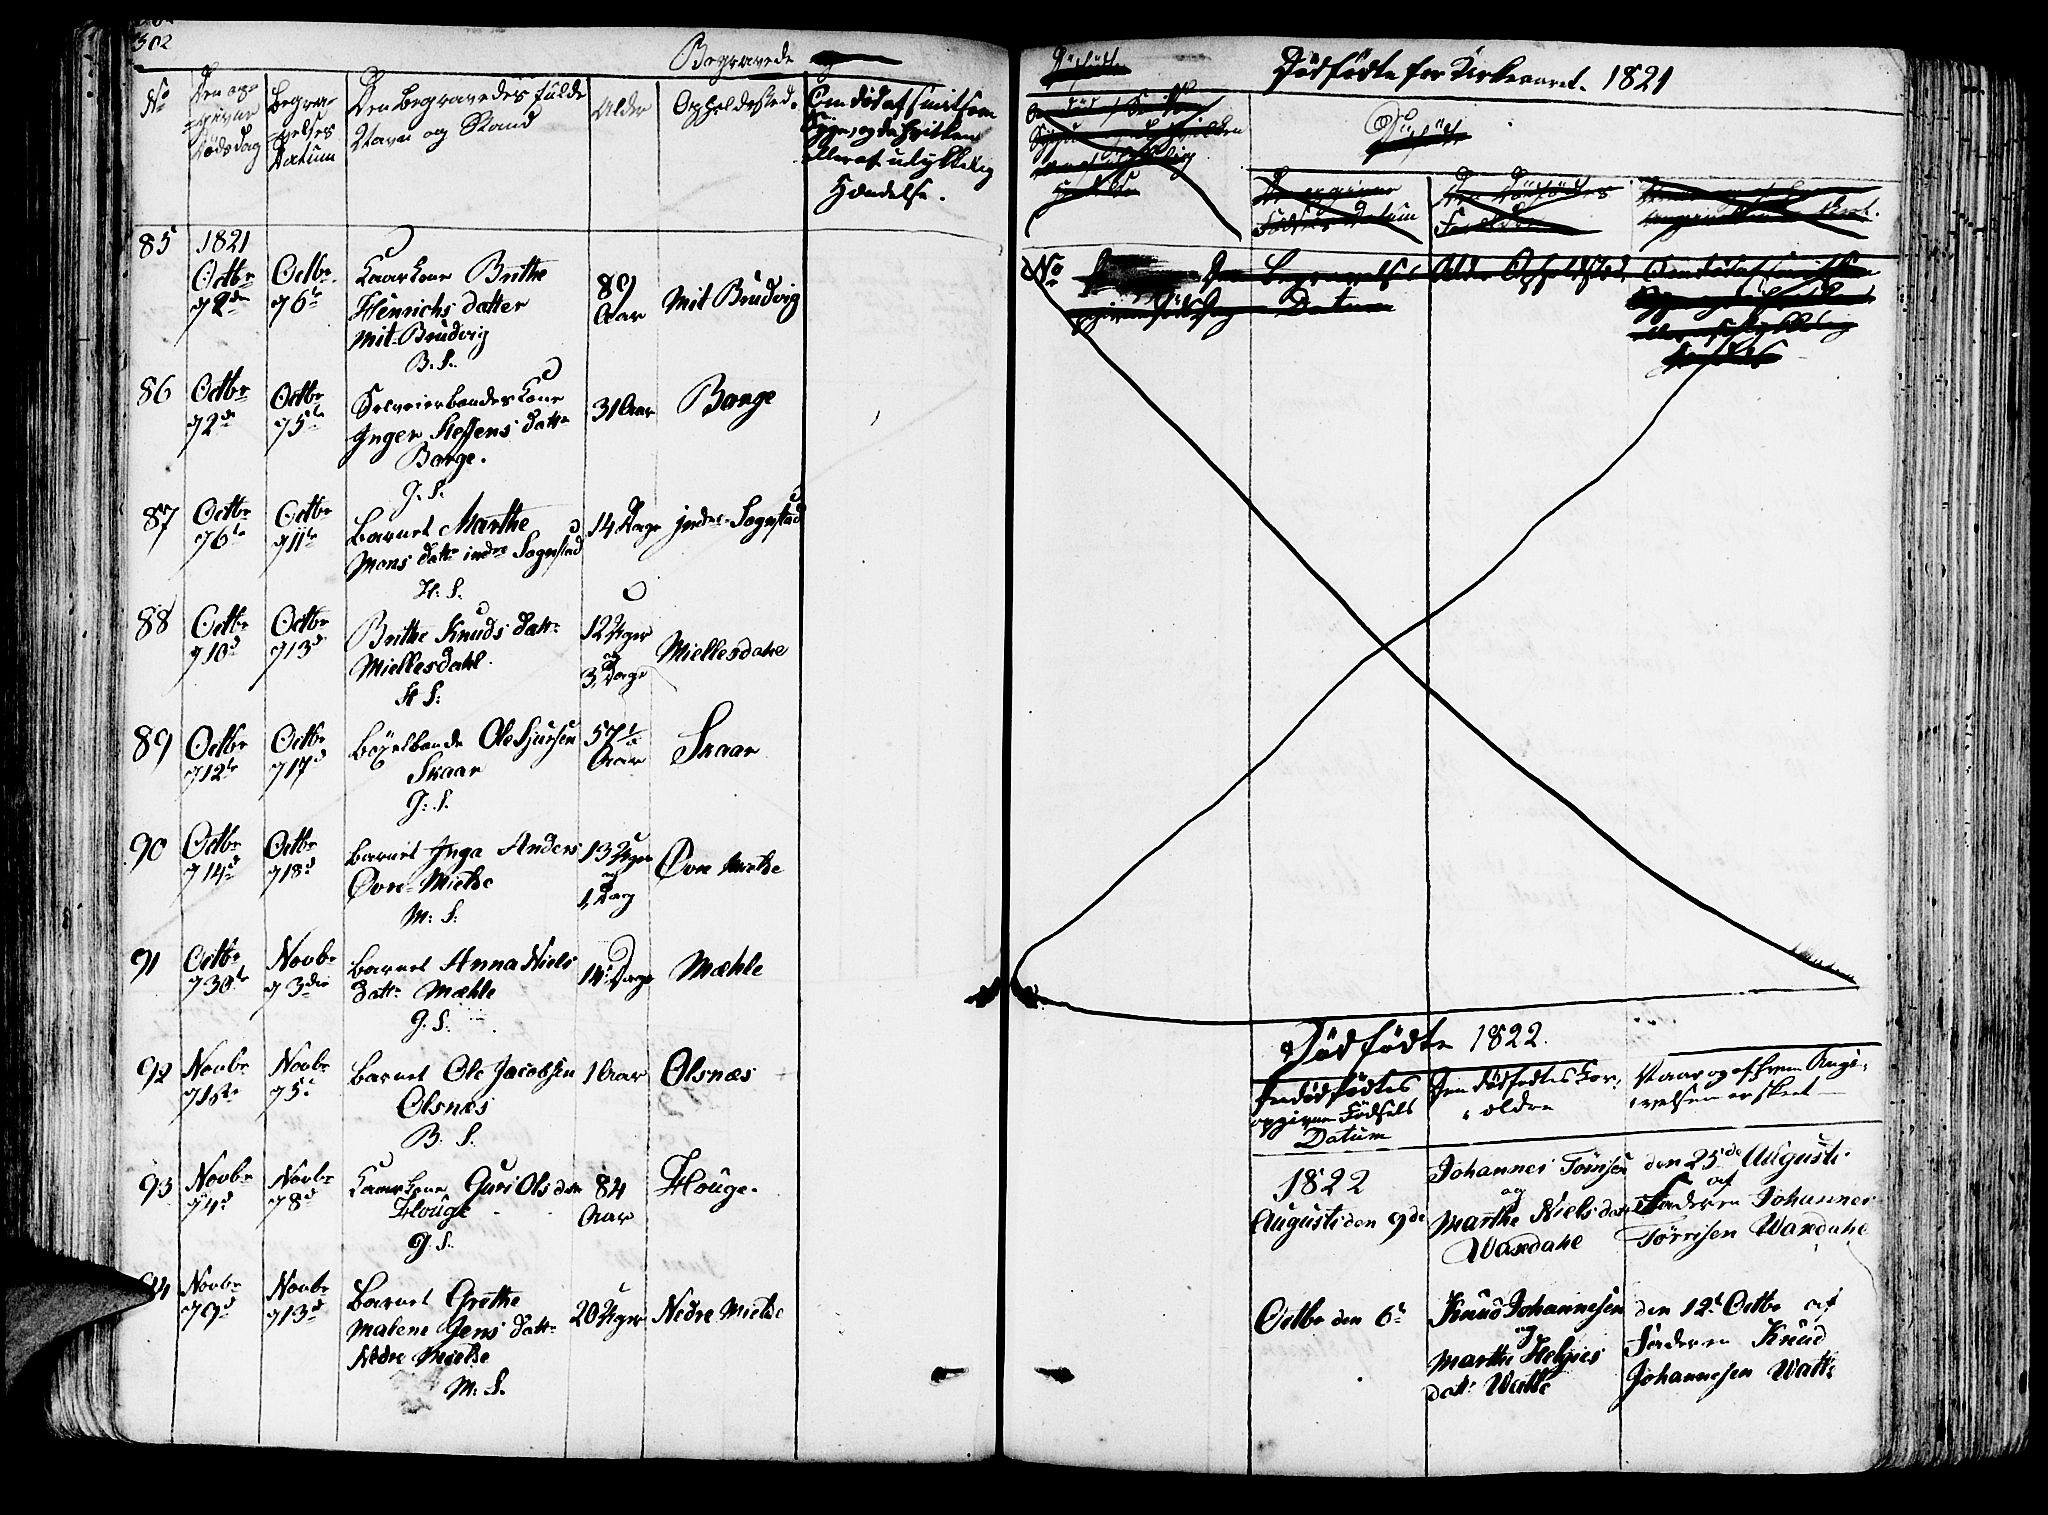 302
Begravede
No
Den op-
givne
Dødsdag
Begra-
velses
Datum
Den begravedes fulde
Navn og Stand
Alder
Opholdssted.
Om død af smitsom
Syge, og da hvilken
eller af ulykkelig
Hændelse.
85
1821
Octbr
d 2den
Octbr
d 6te
Kaarkone Brithe
Henrichs datter
Mit-Brudvig
B. S.
89
Aar
Mit Brudvig
86
Octbr
d 2den
Octbr
d 5te
Selveierbondes Kone
Inger Steffens datr
Borge.
G. S.
31 Aar
Borge
87
Octbr
d 6te
Octbr
d 11te
Barnet Marthe
Mons datr indre Sognstad
H. S.
14 Dage
indre Sognstad
88
Octbr
d 10d
Octbr
d 13d
Brithe Knuds datr
Miellesdahl.
H S.
12 Uger
og
3 Dage
Miellesdahl
89
Octbr
d 12te
Octbr
d 17d
Bøxelbonde Ole Sjursen
Skaar
G. S.
57½
Aar
Skaar
90
Octbr
d 14d
Octbr
d 18d
Barnet Inga Anders
Øvre Mielde
M. S.
13 Uger
og
1 Dag
Øvre Mielde
91
Octbr
d 30te
Novbr
d 3die
Barnet Anna Niels
datr Mæhle
G. S.
14 Dage
Mæhle
92
Novbr
Novbr
d 5te
Barnet Ole Jacobsen
Olsnæs
B. S.
1 Aar
Olsnæs
93
Novbr
d 4d
Novbr
d 8d
Kaarkone Guri Ols datr
Houge
G. S.
84
Aar
Houge.
94
Novbr
d 9d
Novbr
d 13d
Barnet Grethe
Malene Jens datr
Nedre Mielde
M. S.
20 Uger
Nedre Mielde
Dødfødte for Kirkeaaret. 1821
No
Datum
Dødfødte 1822.
Den dødfødtes
opgivne Fødsels
Datum
Den dødfødtes For,
ældre
Naar og af hvem Angi-
velsen er skeet
1822
Augusti den 9de
Johannes Torrisen
og
Marthe Niels datr
Waxdahl
den 25de Augusti
af
Faderen Johannes
Tørrisen Waxdahl
Octbr den 6te
Knud Johannesen
og
Marthe Helgies
datr Watle
den 12te Octbr af
Faderen Knud
Johannesen Watle